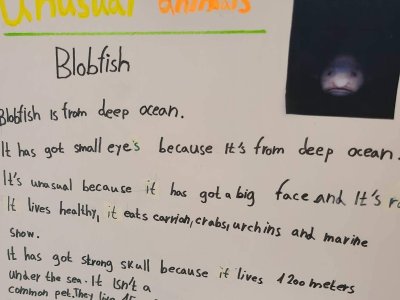 Unusual animals
Blobfish
Blobfish is from deep ocean.
It has got small eye's because It's from deep ocean.
It's unusual because it has got a big face and It's
It lives healthy, it eats carrion, crabs, urchins and marine
snow.
It has got strong skull because it lives 1200 meters
under the sea. It Isn't a
common pet. They live